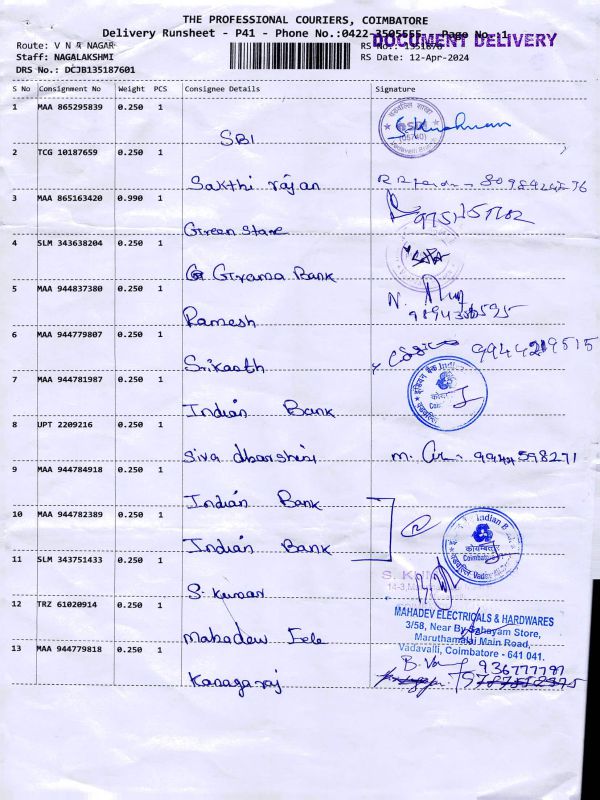 THE PROFESSIONAL COURIERS, COIMBATORE
Delivery Runsheet - P41 - Phone No.:0422-3505555 Page No.:1
DOCUMENT DELIVERY
Route: V N R NAGAR
RS No.: 1351876
Staff: NAGALAKSHMI
RS Date: 12-Apr-2024
DRS No.: DCJB135187601
S No Consignment No Weight PCS Consignee Details Signature
1 MAA 865295839 0.250 1
SBI
2 TCG 10187659 0.250 1
Sakthi rajan
3 MAA 865163420 0.990 1
Green stare
4 SLM 343638204 0.250 1
Grama Bank
5 MAA 944837380 0.250 1
Ramesh
6 MAA 944779807 0.250 1
Srikanth
7 MAA 944781987 1 0.250 1
Indian Bank
8 UPT 2209216 0.250 1
Siva dharshini m. 9944598271
9 MAA 944784918 0.250 1
Indian Bank
10 MAA 944782389 0.250 1
Indian Bank
11 SLM 343751433 0.250 1
S. kumar
12 TRZ 61020914 0.250 1
MAHADEV ELECTRICALS & HARDWARES
3/58, Near By Sabayam Store,
Maruthamalai Main Road,
Vadavalli, Coimbatore - 641 041.
Mahadev Eele
13 MAA 944779818 0.250 1
Kanagaraj